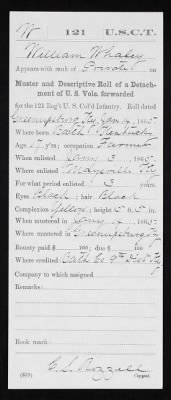 W | 121 | U.S.C.T.
William Whaley
Appears with rank of Private on
Muster and Descriptive Roll of a Detach-
ment of U. S. Vols. forwarded
for the 121 Reg't U. S. Col'd Infantry. Roll dated
Greenupsburg Ky Jan 14, 1865.
Where born Bath Co Kentucky
Age 27 y'rs; occupation Farmer
When enlisted Jany 3, 1865.
Where enlisted Maysville Ky
For what period enlisted 3 years.
Eyes Black; hair Black
Complexion Yellow; height 5 ft. 5 in.
When mustered in Jany 14, 1865.
Where mustered in Greenupsburg Ky
Bounty paid $ 100; due $ 100
Where credited Bath Co 9th Dist Ky
Company to which assigned
Remarks:
Book mark:
(339) Copyist.